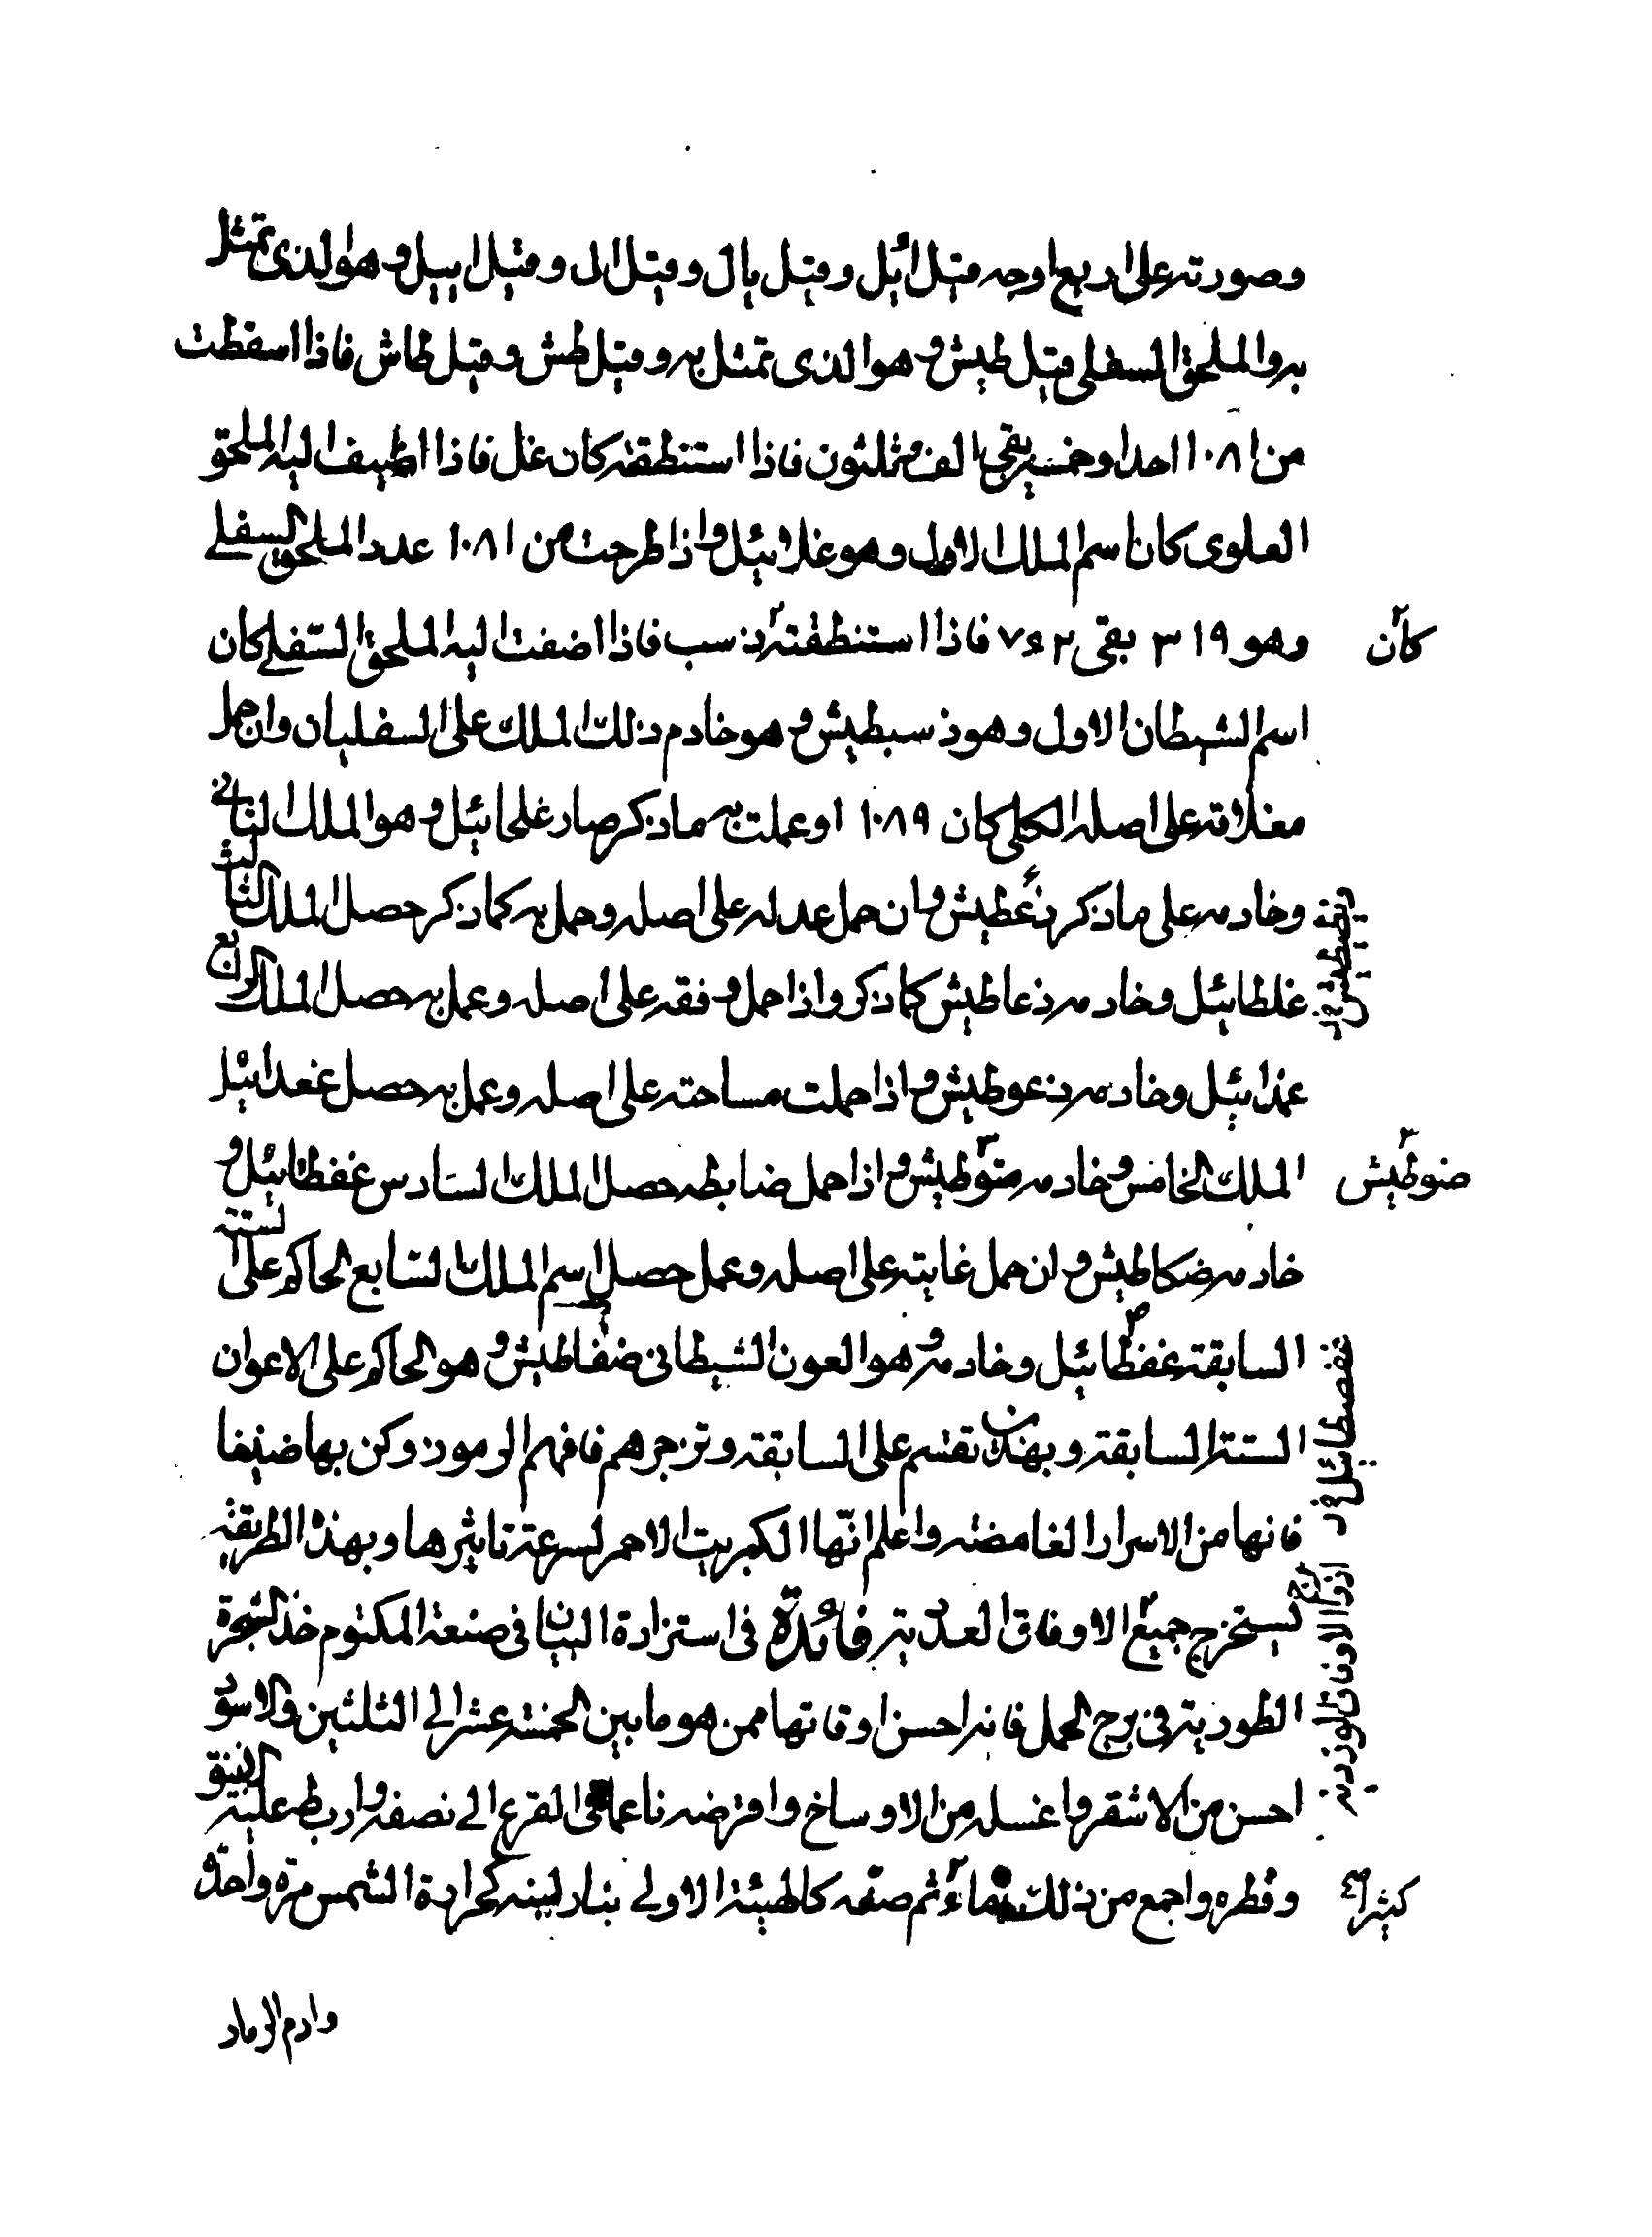 وصورته على اربع اوجه قيل ائيل وقيل يال وقيل ال وقيل اييل وهو الذى تمثل
به والملحق السفلى قيل طيش وهو الذى تمثل به وقيل طش وقيل طاش فاذا اسقطت
من ١٠٨١ احدا وخمسين بقى الف وثلثون فاذا استنطقته كان غل فاذا اضيف اليه الملحق
العلوى كان اسم الملك الاول وهو غلائيل واذا طرحت من ١٠٨١ عدد الملحق السفلے
وهو ٣١٩ بقى ٧٦٢ فاذا استنطقته ذسب فاذا اضفت اليه الملحق السّفلے كان
كان
اسم الشيطان الاول وهو ذسبطيش وهو خادم ذلك الملك على السفليان وان حمل
مغلاقه على اصله الكلى كان ١٠٨٩ او عملت به ما ذكر صار غلحائيل وهو الملك الثانے
وخادمه على ما ذكر ذعطيش وان حمل عدله على اصله وحمل به كما ذكر حصل الملك الثالث
غلطائيل وخادمه ذعاطيش كما ذكر واذا حمل وفقه على اصله وعمل به حصل الملك الرابع
غذائيل وخادمه ذعوطيش واذا حملت مساحته على اصله وعمل به حصل غعدائيل
الملك الخامس وخادمه ضوطيش واذا حمل ضابطه حصل الملك السادس غفظائيل و
ضوطيش
خادمه ضكاطيش وان حمل غايته على اصله وعمل حصل اسم الملك السابع الحاكم على الستة
السابقة غفظائيل وخادمه وهو العون الشيطانى ضفاطيش وهو الحاكم على الاعوان
الستة السابقة وبهذان تقسم على السابقة وتزجرهم فافهم الرموز وكن بها ضنينا
فانها من الاسرار الغامضه واعلم انّها الكبريت الاحمر لسرعة تاثيرها وبهذه الطريقة
تستخرج جميع الاوفاق العددية فائدة فى استزادة البيان فى صنعة المكتوم خذ الشجرة
الطورية فى برج الحمل فانه احسن اوقاتها ممن هو ما بين الخمسة عشر الى الثلثين والاسود
احسن من الاشقر واغسله من الاوساخ واقرضه ناعما القرع الے نصفه واربط عليه الانبيق
وقطره واجمع من ذلك ماء ثم صفه كالهيئة الاولے بنار لينه كحرارة الشمس مرة واحدة
كثيرا
وادم الرماد